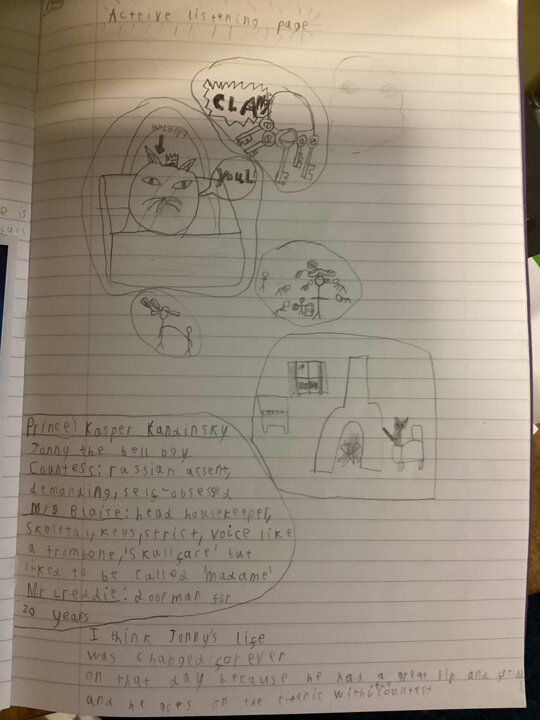 Acttive listening page
CLANG
unhappy
YOU!
Prince) Kasper Kandinsky
Jonny the bell boy
Countess: russian acsent,
demanding, self-obsessed
Mrs Blaise: head housekeeper,
skeletal, keys, strict, voice like
a trombone, 'skullface' but
liked to be called 'madame'
Mr freddie: doorman for
20 years
I think Jonny's life
was changed forever
on that day because he had a great tip and
and he goes on the titanic with countest